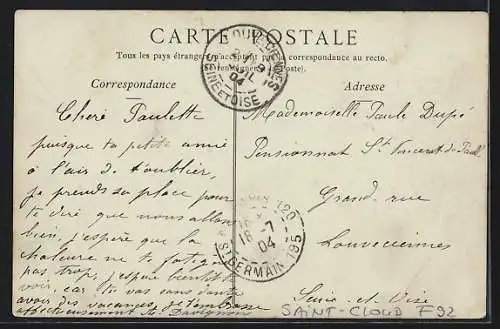 CARTE POSTALE
Tous les pays étrangers n'acceptent pas la correspondance au recto.
Correspondance
Adresse
LOUVECIENNES
JUIL
04
SEINE ET OISE
Chère Paulette
puisque ta petite amie
à l'air de t'oublier,
je prends sa place pour
te dire que nous allons
bien, j'espère que la
chaleur ne te fatigue
pas trop, j'espère bientôt
voir, car tu vas sans doute
avoir des vacances, je t'embrasse
affectueusement
Mademoiselle Paule Dupé
Pensionnat St Vincent de Paul
Grand rue
Louveciennes
Seine et Oise
120
16 -7
04
ST GERMAIN 195
SAINT-CLOUD F92